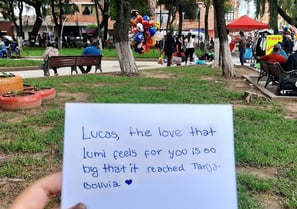 Lucas, the love that
lumi feels for you is so
big that it reached Tarija-
Bolivia ♥